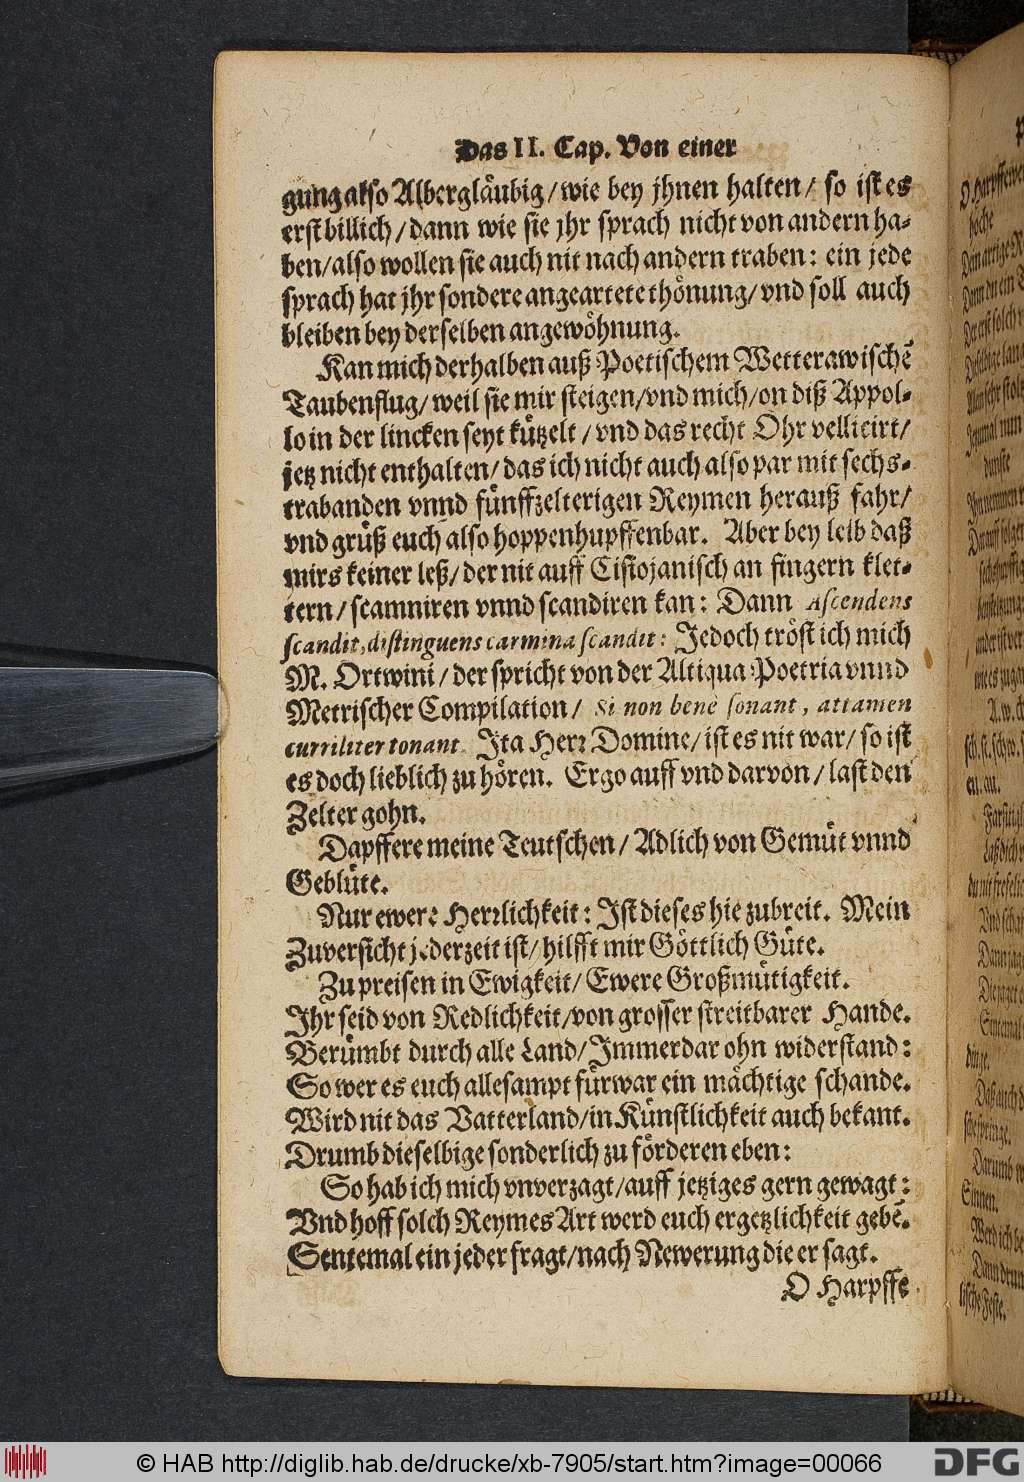 Das II. Cap. Von einer
gung also Albergläubig/ wie bey jhnen halten/ so ist es
erst billich/ dann wie sie jhr sprach nicht von andern ha-
ben/ also wollen sie auch nit nach andern traben: ein jede
sprach hat jhr sondere angeartete thönung/ vnd soll auch
bleiben bey derselben angewöhnung.
Kan mich derhalben auß Poetischem Wetterawischẽ
Taubenflug/ weil sie mir steigen/ vnd mich/ on diß Appol-
lo in der lincken seyt kützelt/ vnd das recht Ohr vellicirt/
jetz nicht enthalten/ das ich nicht auch also par mit sechs-
trabanden vnnd fünffzelterigen Reymen herauß fahr/
vnd grüß euch also hoppenhupffenbar. Aber bey leib daß
mirs keiner leß/ der nit auff Cistojanisch an fingern klet-
tern/ scamniren vnnd scandiren kan: Dann Ascendens
scandit, distinguens carmina scandit: Jedoch tröst ich mich
M. Ortwini/ der spricht von der Altiqua Poetria vnnd
Metrischer Compilation/ Si non benè sonant, attamen
curriliter tonant. Ita Herr Domine/ ist es nit war/ so ist
es doch lieblich zu hören. Ergo auff vnd darvon/ last den
Zelter gohn.
Dapffere meine Teutschen/ Adlich von Gemüt vnnd
Geblüte.
Nur ewerr Herrlichkeit: Ist dieses hie zubreit. Mein
Zuversicht jederzeit ist/ hilfft mir Göttlich Güte.
Zu preisen in Ewigkeit/ Ewere Großmütigkeit.
Ihr seid von Redlichkeit/ von grosser streitbarer Hande.
Berümbt durch alle Land/ Immerdar ohn widerstand:
So wer es euch allesampt fürwar ein mächtige schande.
Wird nit das Vatterland/ in Künstlichkeit auch bekant.
Drumb dieselbige sonderlich zu förderen eben:
So hab ich mich vnverzagt/ auff jetziges gern gewagt:
Vnd hoff solch Reymes Art werd euch ergetzlichkeit gebẽ.
Sentemal ein jeder fragt/ nach Newerung die er sagt.
O Harpffẽ
© HAB http://diglib.hab.de/drucke/xb-7905/start.htm?image=00066
DFG